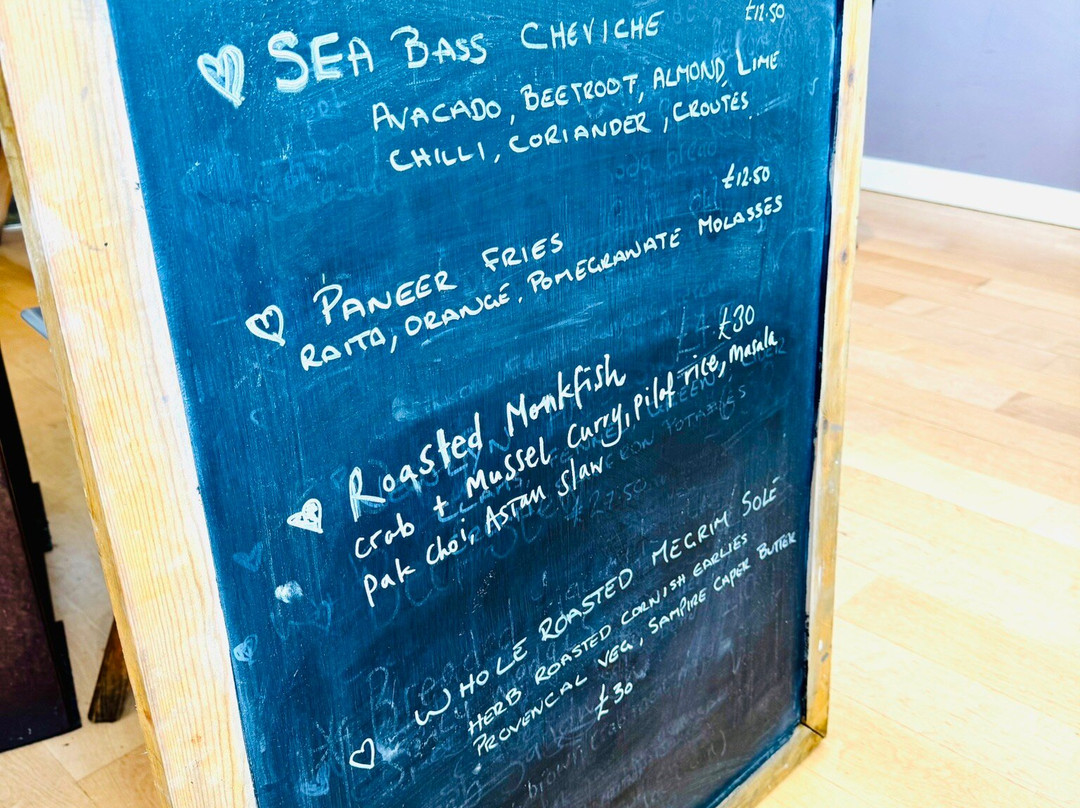 £12.50
SEA BASS CHEVICHE
AVACADO, BEETROOT, ALMOND, LIME
CHILLI, CORIANDER, CROUTES
£12.50
PANEER FRIES
RAITA, ORANGE, POMEGRANATE MOLASSES
£30
Roasted Monkfish
crab + Mussel curry, pilaf rice, Masala,
pak choi, ASIAN slaw
WHOLE ROASTED MEGRIM SOLE
HERB ROASTED CORNISH EARLIES
PROVENCAL VEG, SAMPIRE CAPER BUTTER
£30